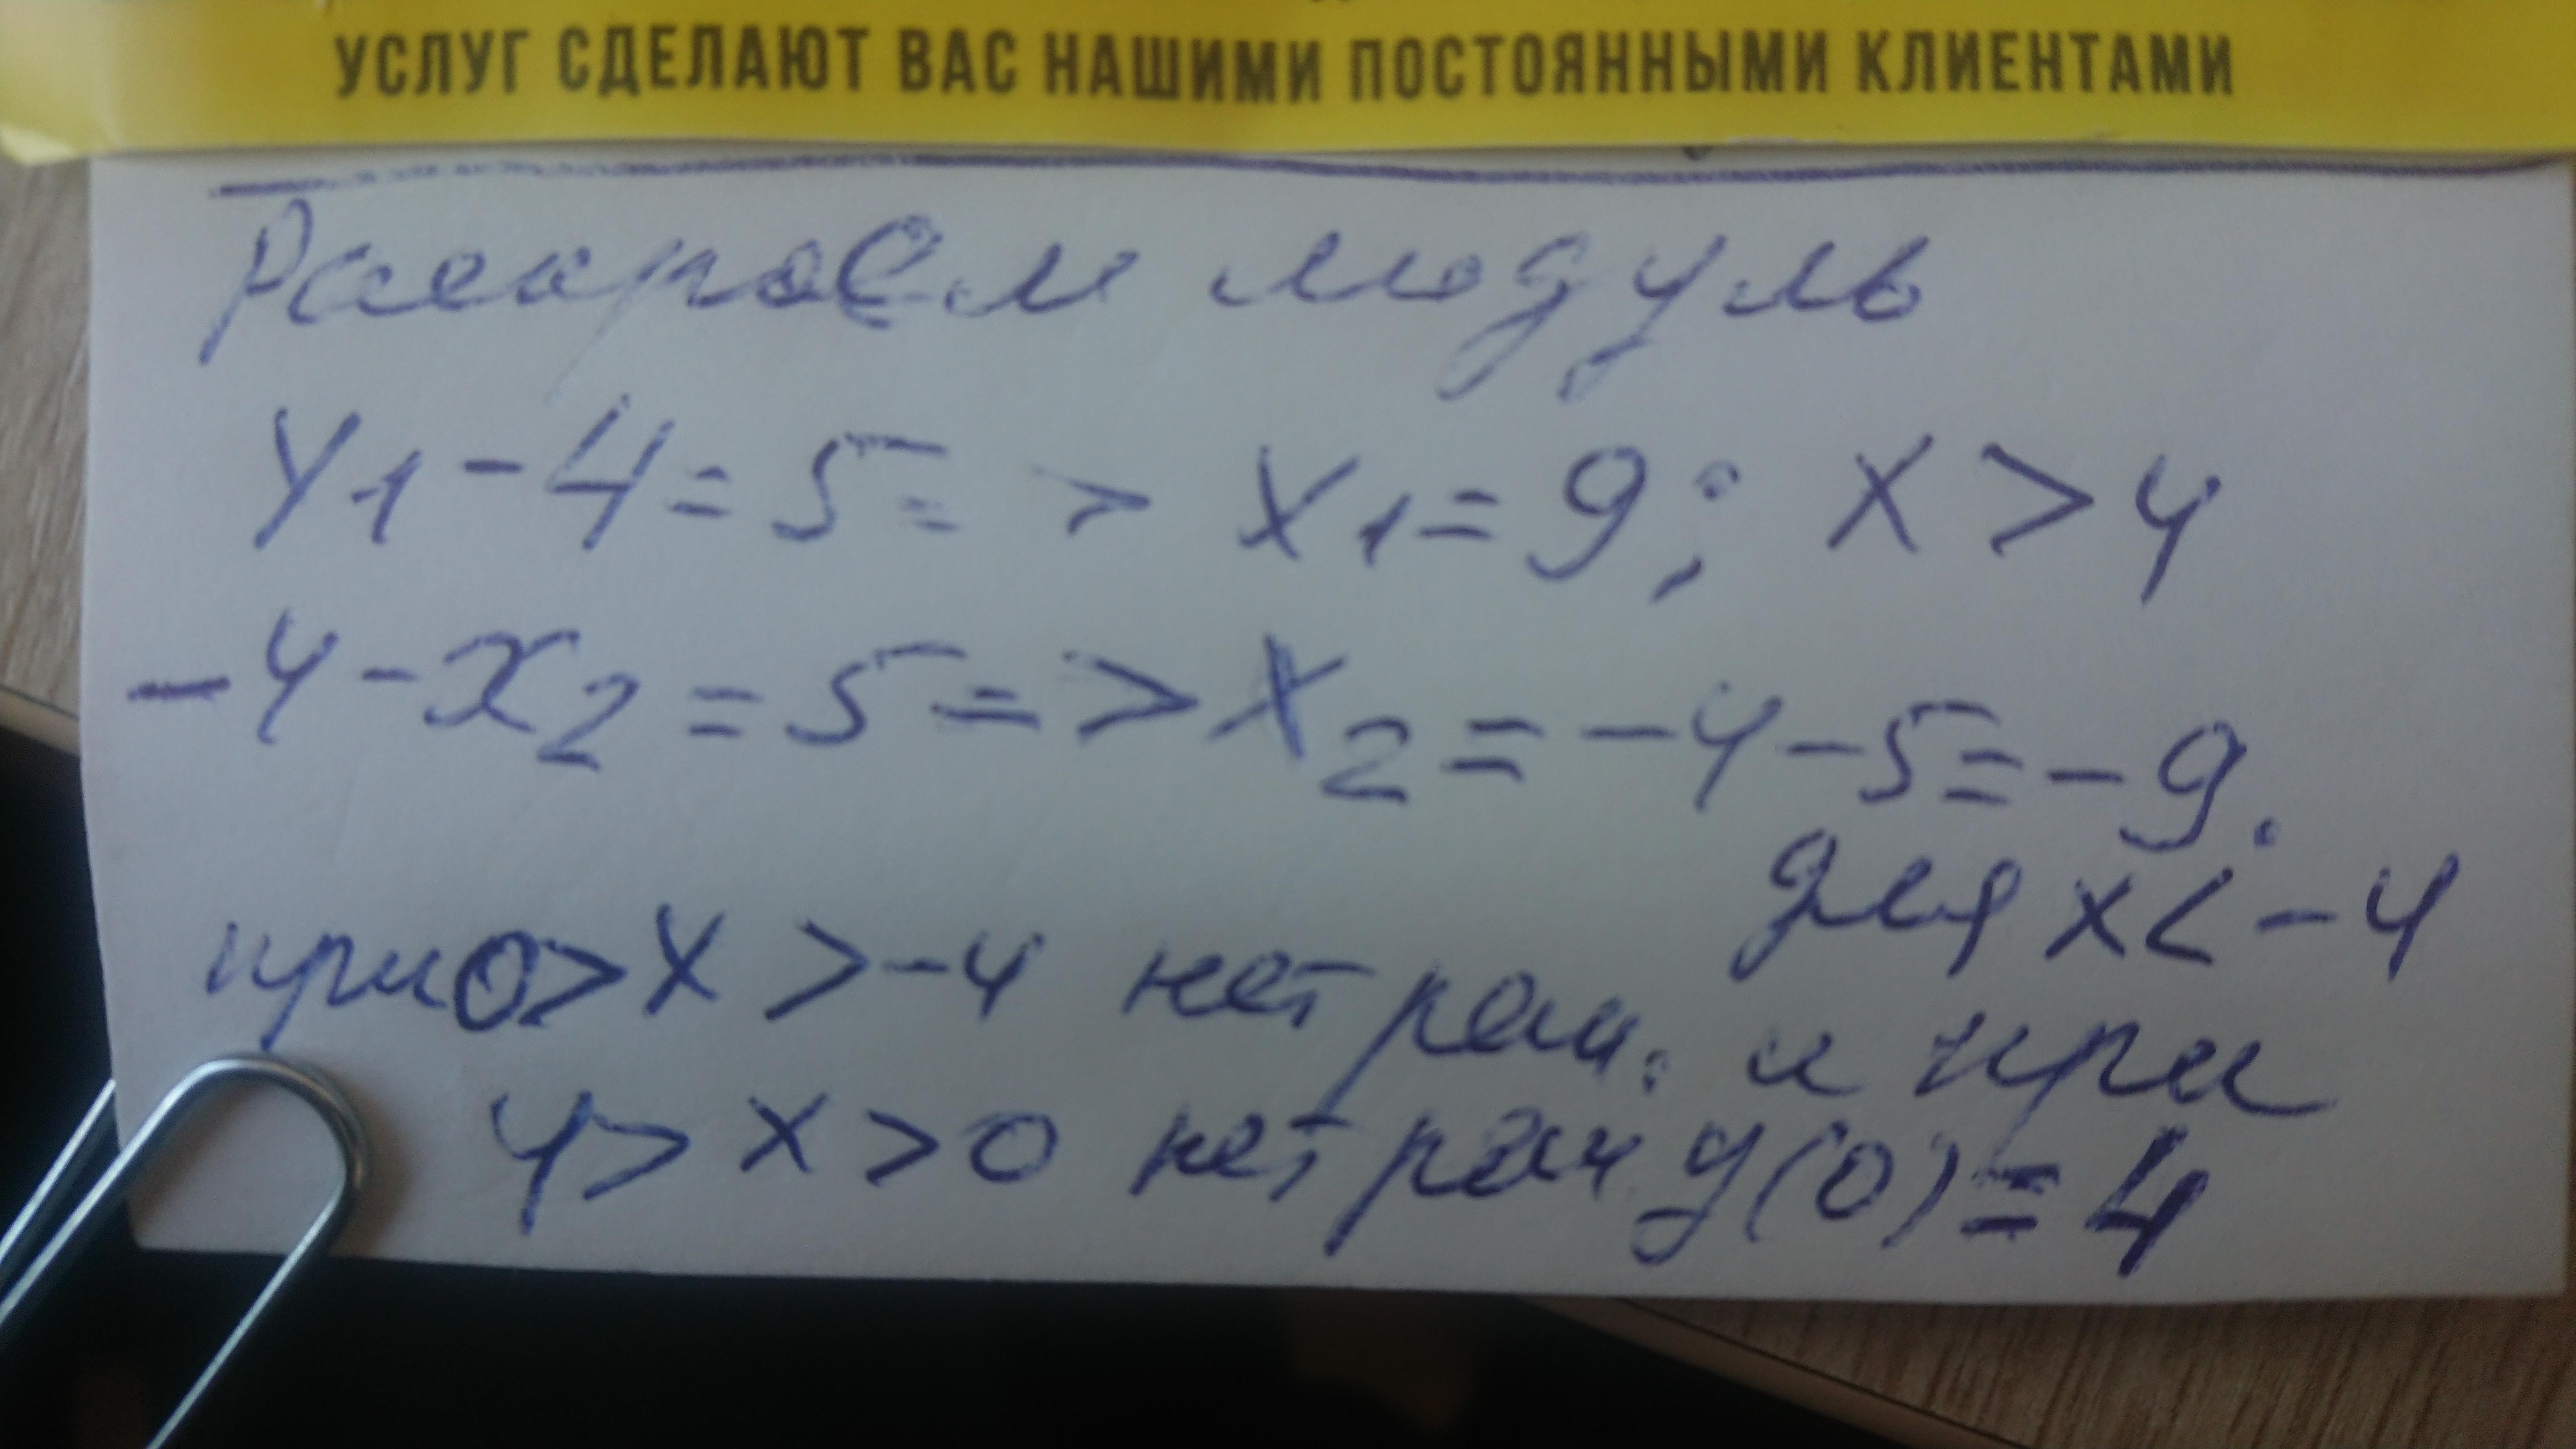 УСЛУГ СДЕЛАЮТ ВАС НАШИМИ ПОСТОЯННЫМИ КЛИЕНТАМИ
Раскроем модуль
X1-4=5=> X1=9; X>4
-4-X2=5=>X2=-4-5=-9.
для X<-4
при 0>X>-4 нет реш. и при
4>X>0 нет реш y(0)=4